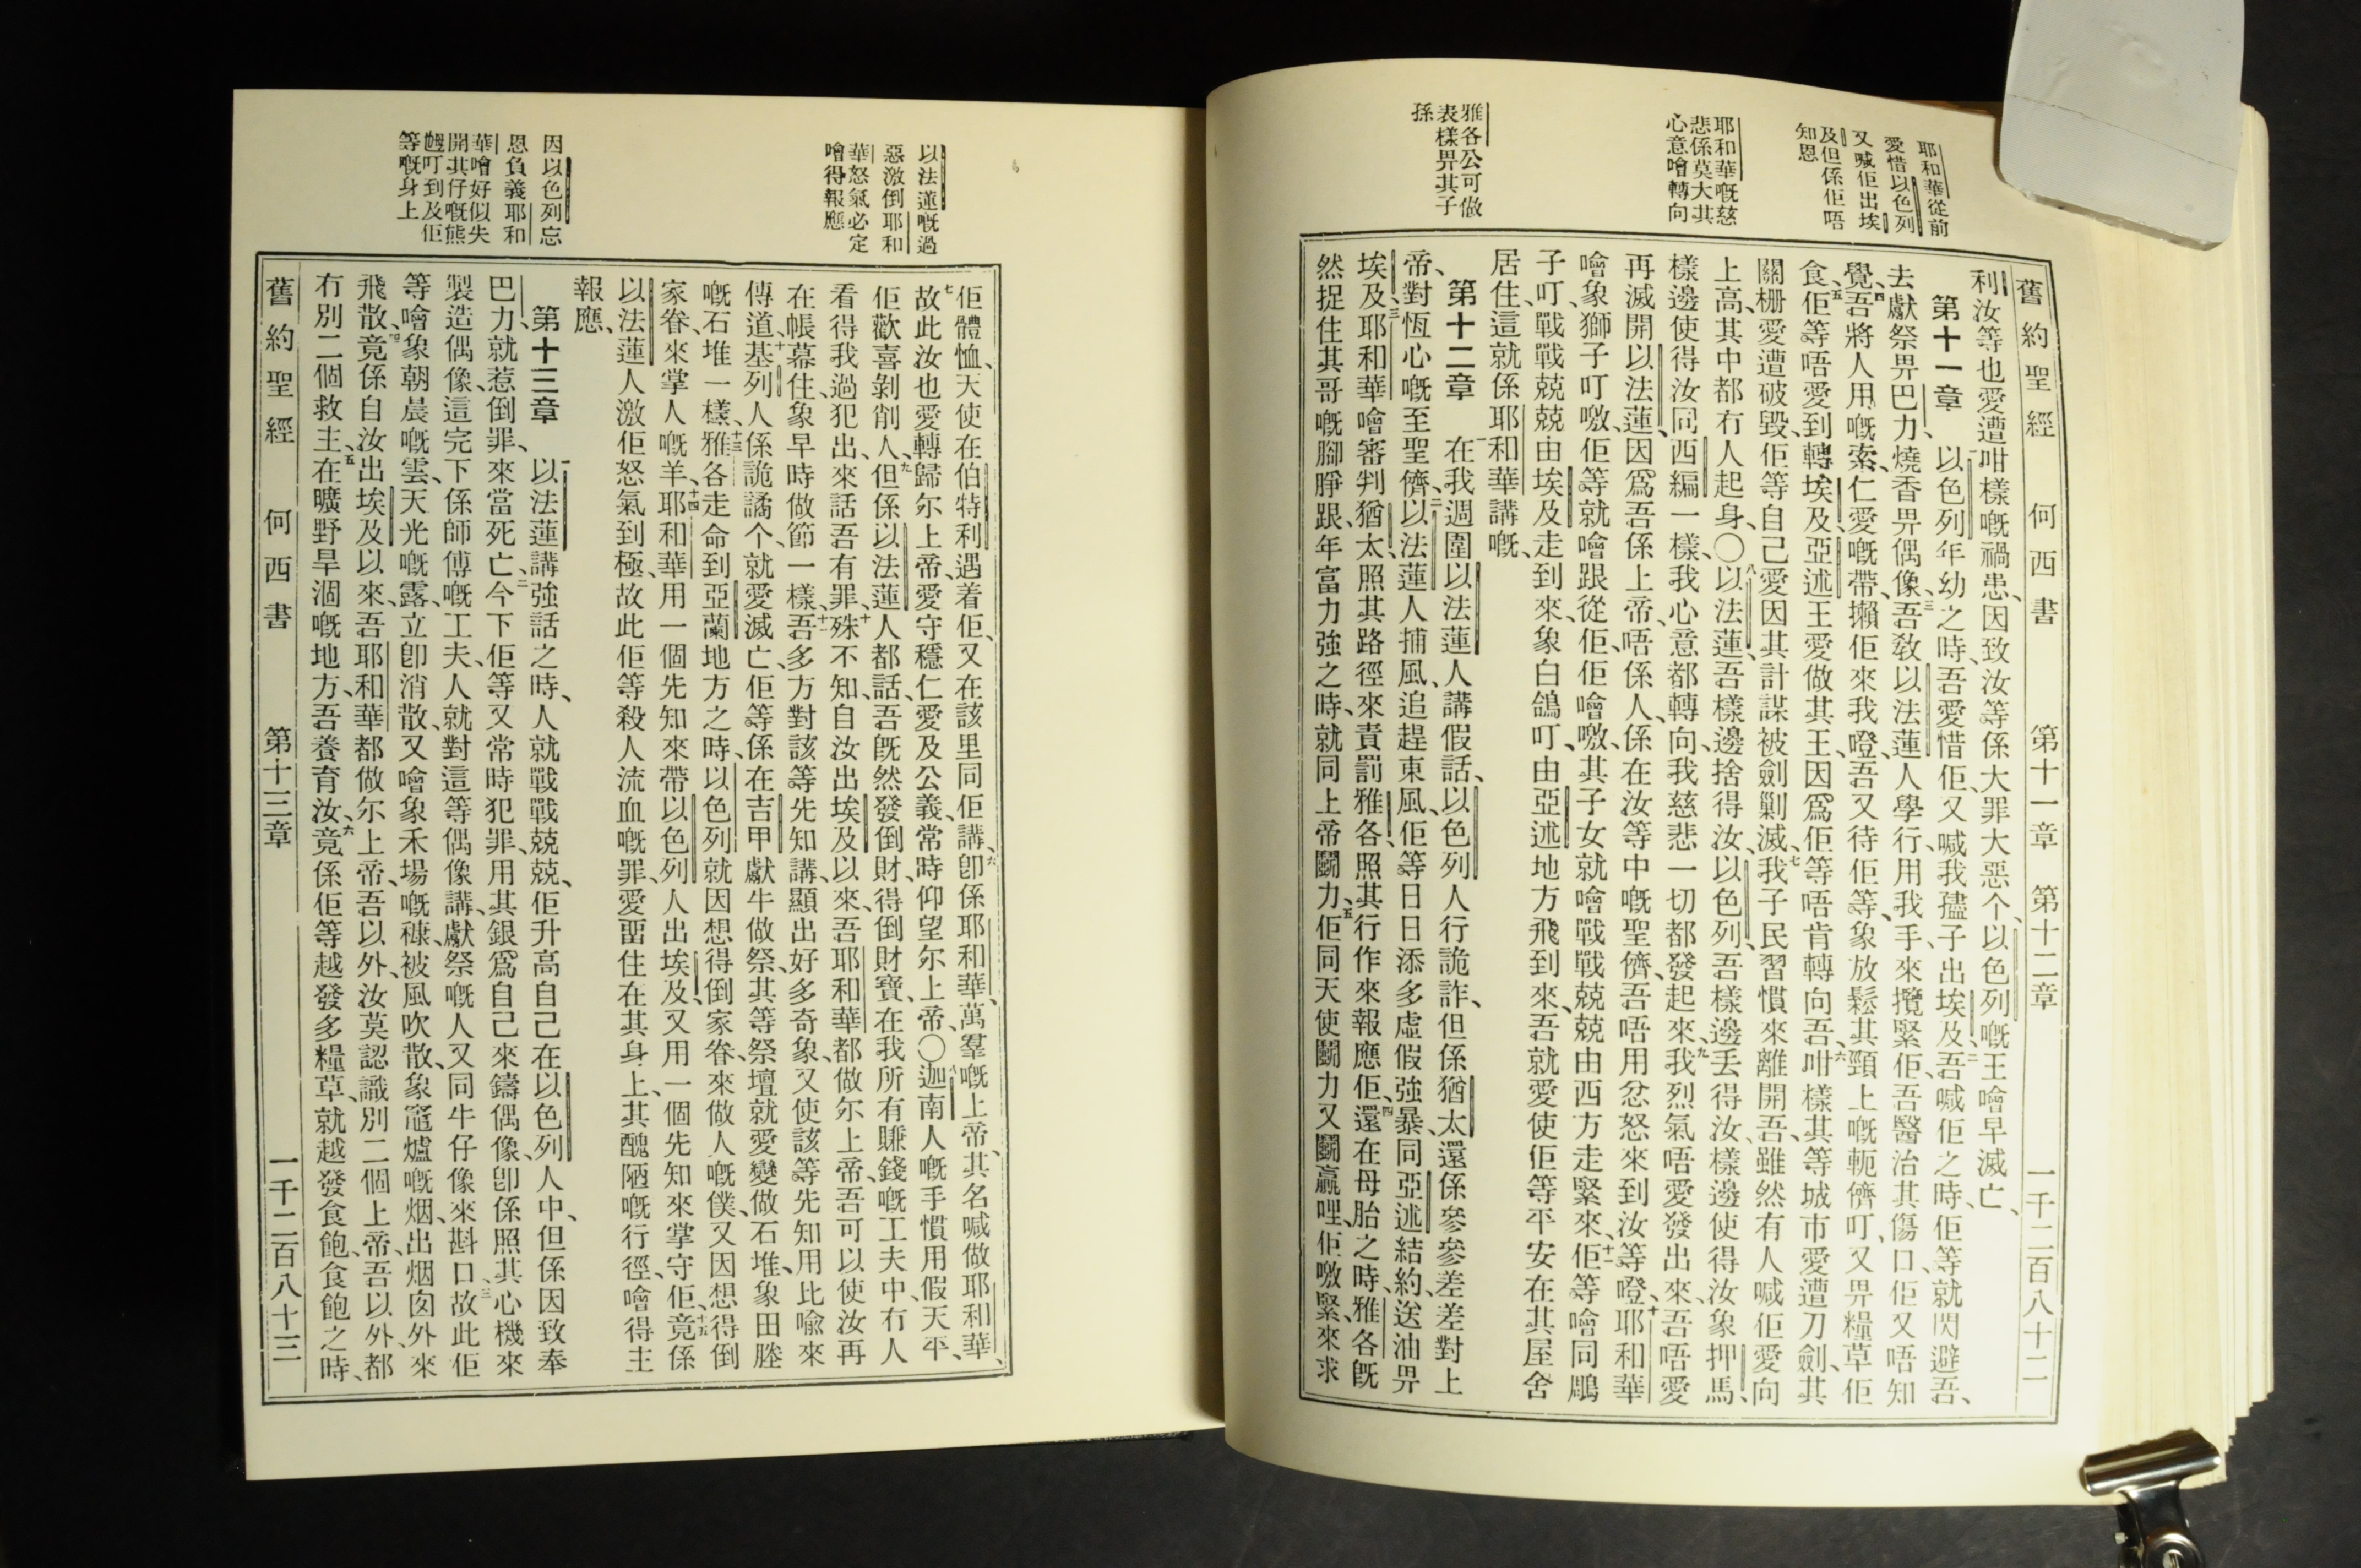 舊約聖經 何西書 第十一章 第十二章 一千二百八十二
耶和華從前
愛惜以色列
又喊佢出埃
及但係佢唔
知恩
耶和華嘅慈
悲係莫大其
心意噲轉向
雅各公可做
表樣畀其子
孫
利汝等也愛遭咁樣嘅禍患、因致汝等係大罪大惡个、以色列嘅王噲早滅亡、
第十一章 一以色列年幼之時、吾愛惜佢、又喊我儘子出埃及、二吾喊佢之時、佢等就閃避吾、
去獻祭畀巴力、燒香畀偶像、三吾教以法蓮人學行、用我手、來攬緊佢、吾醫治其傷口、佢又唔知
覺、四吾將人用嘅索、仁愛嘅帶、攋佢來我噔、吾又待佢等、象放鬆其頸上嘅軛儕叮、又畀糧草佢
食、五佢等唔愛到轉埃及、亞述王愛做其王、因爲佢等唔肯轉向吾、六咁樣其等城市愛遭刀劍、其
關栅愛遭破毀、佢等自己愛因其計謀被劍剿滅、七我子民習慣來離開吾、雖然有人喊佢愛向
上高、其中都冇人起身、〇八以法蓮、吾樣邊捨得汝、以色列、吾樣邊丟得汝、樣邊使得汝象押馬、
樣邊使得汝同西編一樣、我心意都轉向、我慈悲一切都發起來、九我烈氣唔愛發出來、吾唔愛
再滅開以法蓮、因爲吾係上帝、唔係人、係在汝等中嘅聖儕、吾唔用忿怒來到汝等噔、十耶和華
噲象獅子叮噭、佢等就噲跟從佢、佢噲噭、其子女就噲戰戰兢兢由西方走緊來、十一佢等噲同鵰
子叮、戰戰兢兢由埃及走到來、象白鴿叮、由亞述地方飛到來、吾就愛使佢等平安在其屋舍
居住、這就係耶和華講嘅、
第十二章 一在我週圍以法蓮人講假話、以色列人行詭詐、但係猶太還係參參差差對上
帝、對恆心嘅至聖儕、二以法蓮人捕風、追趕東風、佢等日日添多虛假強暴、同亞述結約、送油畀
埃及、三耶和華噲審判猶太、照其路徑來責罰雅各、照其行作來報應佢、四還在母胎之時、雅各旣
然捉住其哥嘅腳睜跟、年富力強之時、就同上帝鬭力、五佢同天使鬭力又鬭贏哩、佢噭緊、來求
以法蓮嘅過
惡激倒耶和
華怒氣必定
噲得報應
因以色列忘
恩負義耶和
華噲好似失
開其仔嘅熊
𡟓叮到及佢
等嘅身上
佢體恤、天使在伯特利遇着佢、又在該里同佢講、六卽係耶和華、萬羣嘅上帝、其名喊做耶和華、
七故此汝也愛轉歸尔上帝、愛守穩仁愛及公義、常時仰望尔上帝、〇八迦南人嘅手慣用假天平、
佢歡喜剝削人、九但係以法蓮人都話、吾旣然發倒財、得倒財寶、在我所有賺錢嘅工夫中、冇人
看得我過犯出、來話吾有罪、十殊不知、自汝出埃及以來、吾耶和華都做尔上帝、吾可以使汝再
在帳幕住、象早時做節一樣、十一吾多方對該等先知講、顯出好多奇象、又使該等先知用比喩來
傳道、十二基列人係詭譎个、就愛滅亡、佢等係在吉甲獻牛做祭、其等祭壇就愛變做石堆、象田塍
嘅石堆一樣、十三雅各走命到亞蘭地方之時、以色列就因想得倒家眷、來做人嘅僕、又因想得倒
家眷、來掌人嘅羊、十四耶和華用一個先知來帶以色列人出埃及、又用一個先知來掌守佢、十五竟係
以法蓮人激佢怒氣到極、故此佢等殺人流血嘅罪、愛畱住在其身上、其醜陋嘅行徑、噲得主
報應、
第十三章 一以法蓮講強話之時、人就戰戰兢兢、佢升高自己在以色列人中、但係因致奉
巴力、就惹倒罪、來當死亡、二今下佢等又常時犯罪、用其銀爲自己來鑄偶像、卽係照其心機來
製造偶像、這完下係師傅嘅工夫、人就對這等偶像講、獻祭嘅人又同牛仔像來斟口、三故此佢
等噲象朝晨嘅雲、天光嘅露、立卽消散、又噲象禾場嘅糠、被風吹散、象竈爐嘅烟、出烟囪外來
飛散、四竟係自汝出埃及以來、吾耶和華都做尔上帝、吾以外、汝莫認識別二個上帝、吾以外、都
冇別二個救主、五在曠野旱涸嘅地方、吾養育汝、六竟係佢等越發多糧草、就越發食飽、食飽之時、
舊約聖經 何西書 第十三章 一千二百八十三